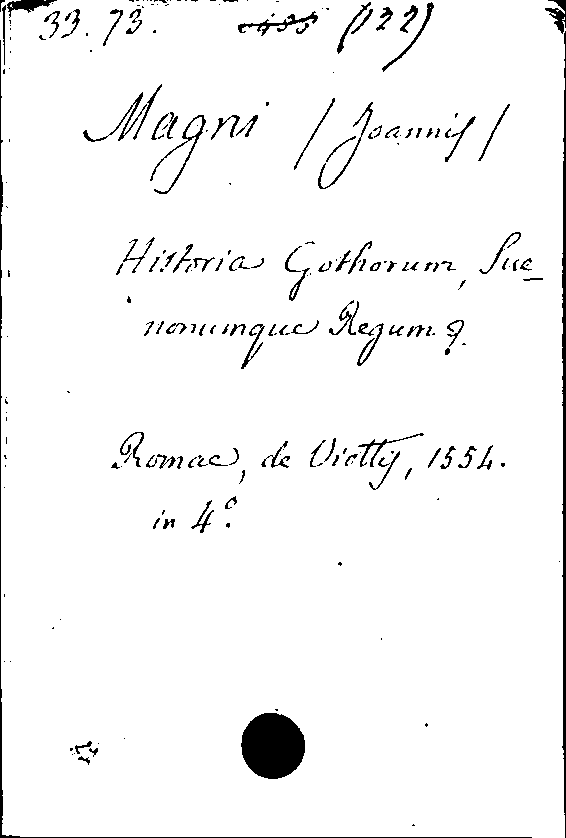 33. 73. (122)
Magni (Joannis)
Historia Gothorum, Sue-
nonumque Regum &.
Romae, de Viottis, 1554.
in 4°.